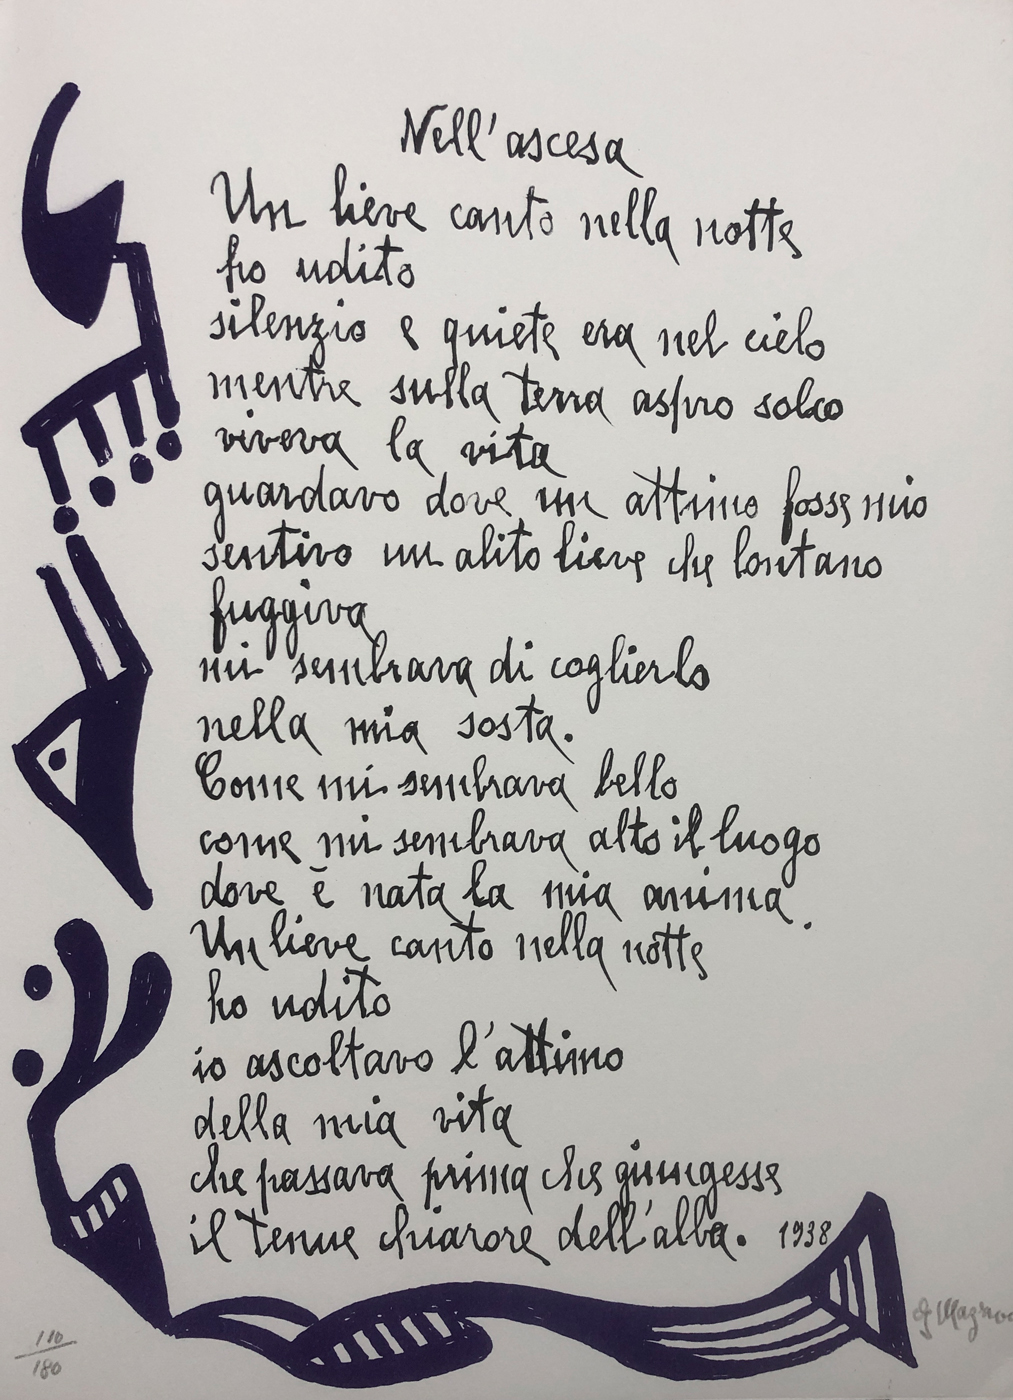 Nell'ascesa
Un lieve canto nella notte
ho udito
silenzio e quiete era nel cielo
mentre sulla terra aspro solco
viveva la vita
guardavo dove un attimo fosse mio
sentivo un alito lieve che lontano
fuggiva
mi sembrava di coglierlo
nella mia sosta.
Come mi sembrava bello
come mi sembrava alto il luogo
dove è nata la mia anima.
Un lieve canto nella notte
ho udito
io ascoltavo l'attimo
della mia vita
che passava prima che giungesse
il tenue chiarore dell'alba. 1938
110/180